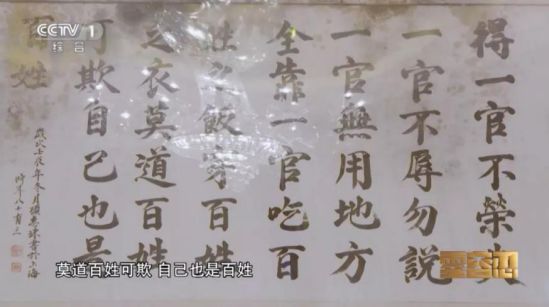 CCTV 1
综合
得一官不榮失
一官不辱勿說
一官無用地方
全靠一官吃百
姓之飯穿百姓
之衣莫道百姓
可欺自己也是
百姓
歲次壬辰年冬月書於上海
時年八十有三
莫道百姓可欺 自己也是百姓